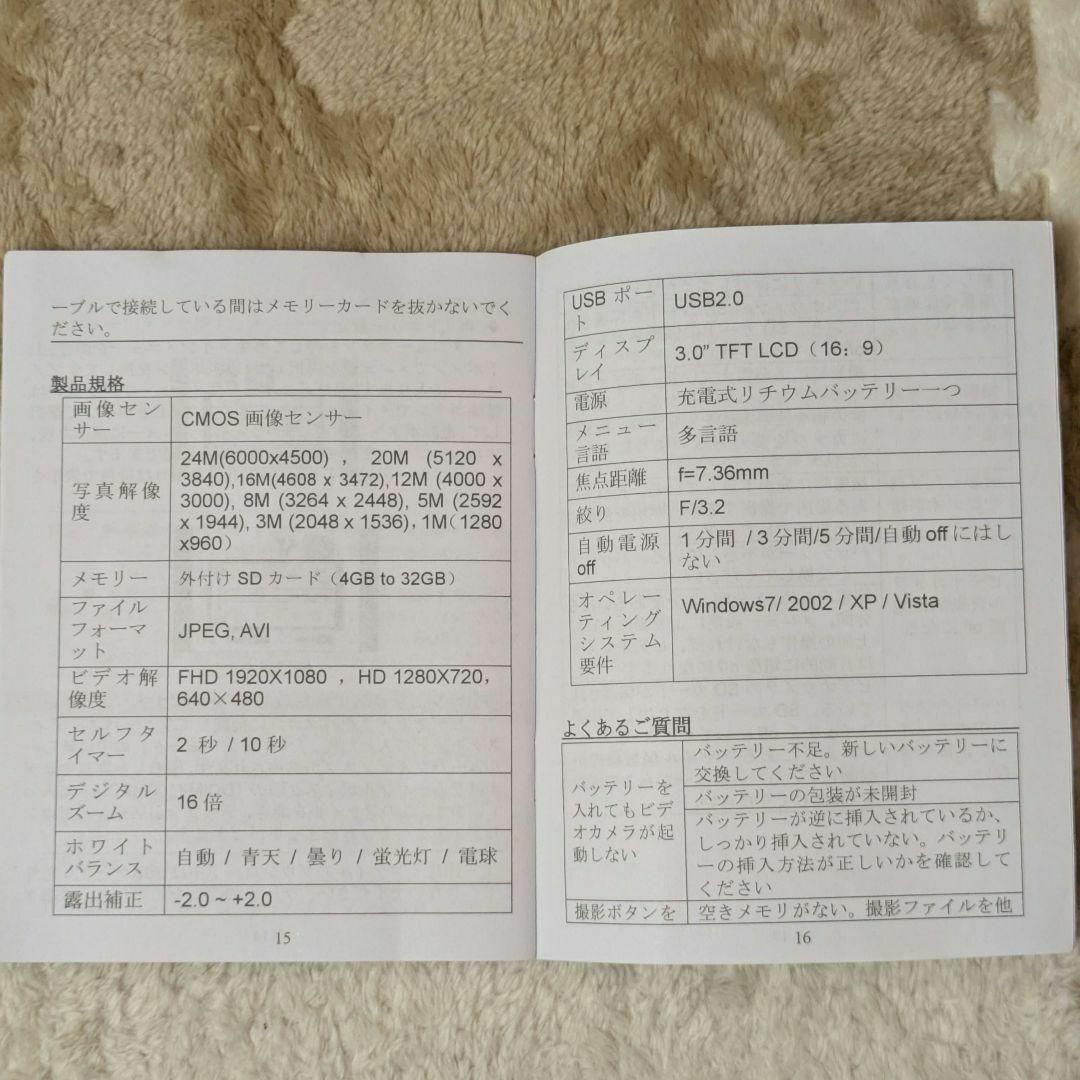 ーブルで接続している間はメモリーカードを抜かないでく
ださい。
製品規格
画像セン
サー
CMOS 画像センサー
写真解像
度
24M(6000x4500) , 20M (5120 x
3840),16M(4608 x 3472),12M (4000 x
3000), 8M (3264 x 2448), 5M (2592
x 1944), 3M (2048 x 1536), 1M(1280
x960)
メモリー
外付け SD カード（4GB to 32GB）
ファイル
フォーマ
ット
JPEG, AVI
ビデオ解
像度
FHD 1920X1080 , HD 1280X720,
640×480
セルフタ
イマー
2 秒 / 10 秒
デジタル
ズーム
16 倍
ホワイト
バランス
自動 / 青天 / 曇り / 蛍光灯 / 電球
露出補正
-2.0 ~ +2.0
15
USB ポー
ト
USB2.0
ディスプ
レイ
3.0” TFT LCD（16：9）
電源
充電式リチウムバッテリー一つ
メニュー
言語
多言語
焦点距離
f=7.36mm
絞り
F/3.2
自動電源
off
1 分間 / 3 分間/5 分間/自動 off にはし
ない
オペレー
ティング
システム
要件
Windows7/ 2002 / XP / Vista
よくあるご質問
バッテリーを
入れてもビデ
オカメラが起
動しない
バッテリー不足。新しいバッテリーに
交換してください
バッテリーの包装が未開封
バッテリーが逆に挿入されているか、
しっかり挿入されていない。バッテリ
ーの挿入方法が正しいかを確認して
ください
撮影ボタンを
空きメモリがない。撮影ファイルを他
16